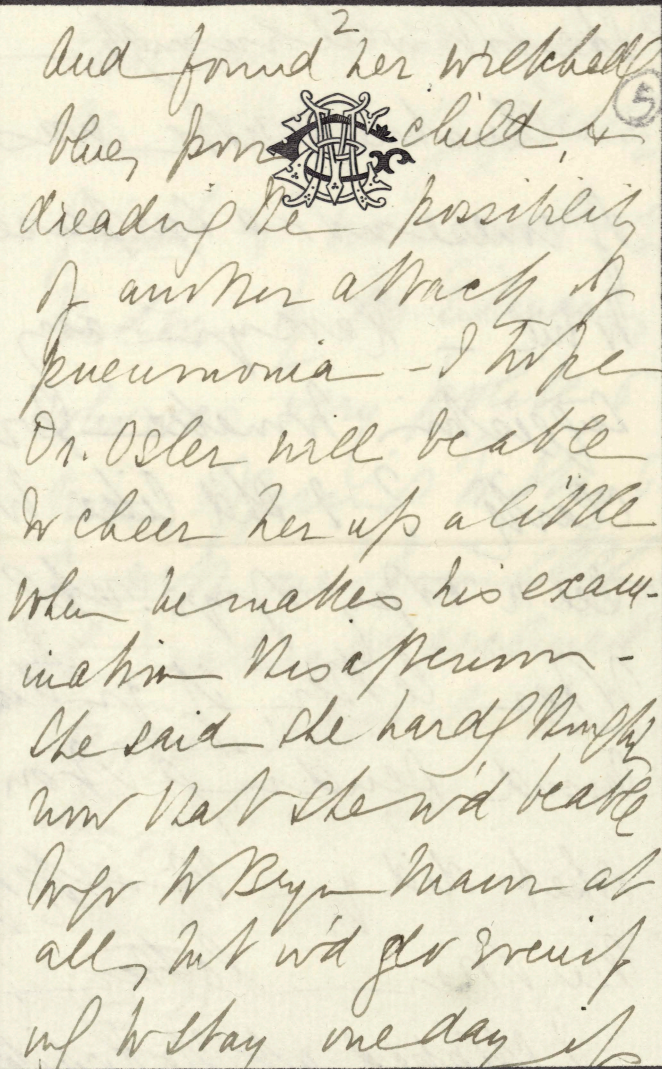 2
and found her wretched
blue, poor child, &
5
dreading the possibility
of another attack of
pneumonia - I hope
Dr. Osler will be able
to cheer her up a little
when he makes his exam-
ination this afternoon -
She said she hardly thought
now that she w'd be able
to go to Bryn Mawr at
all, but w'd go Evenif
to stay one day if